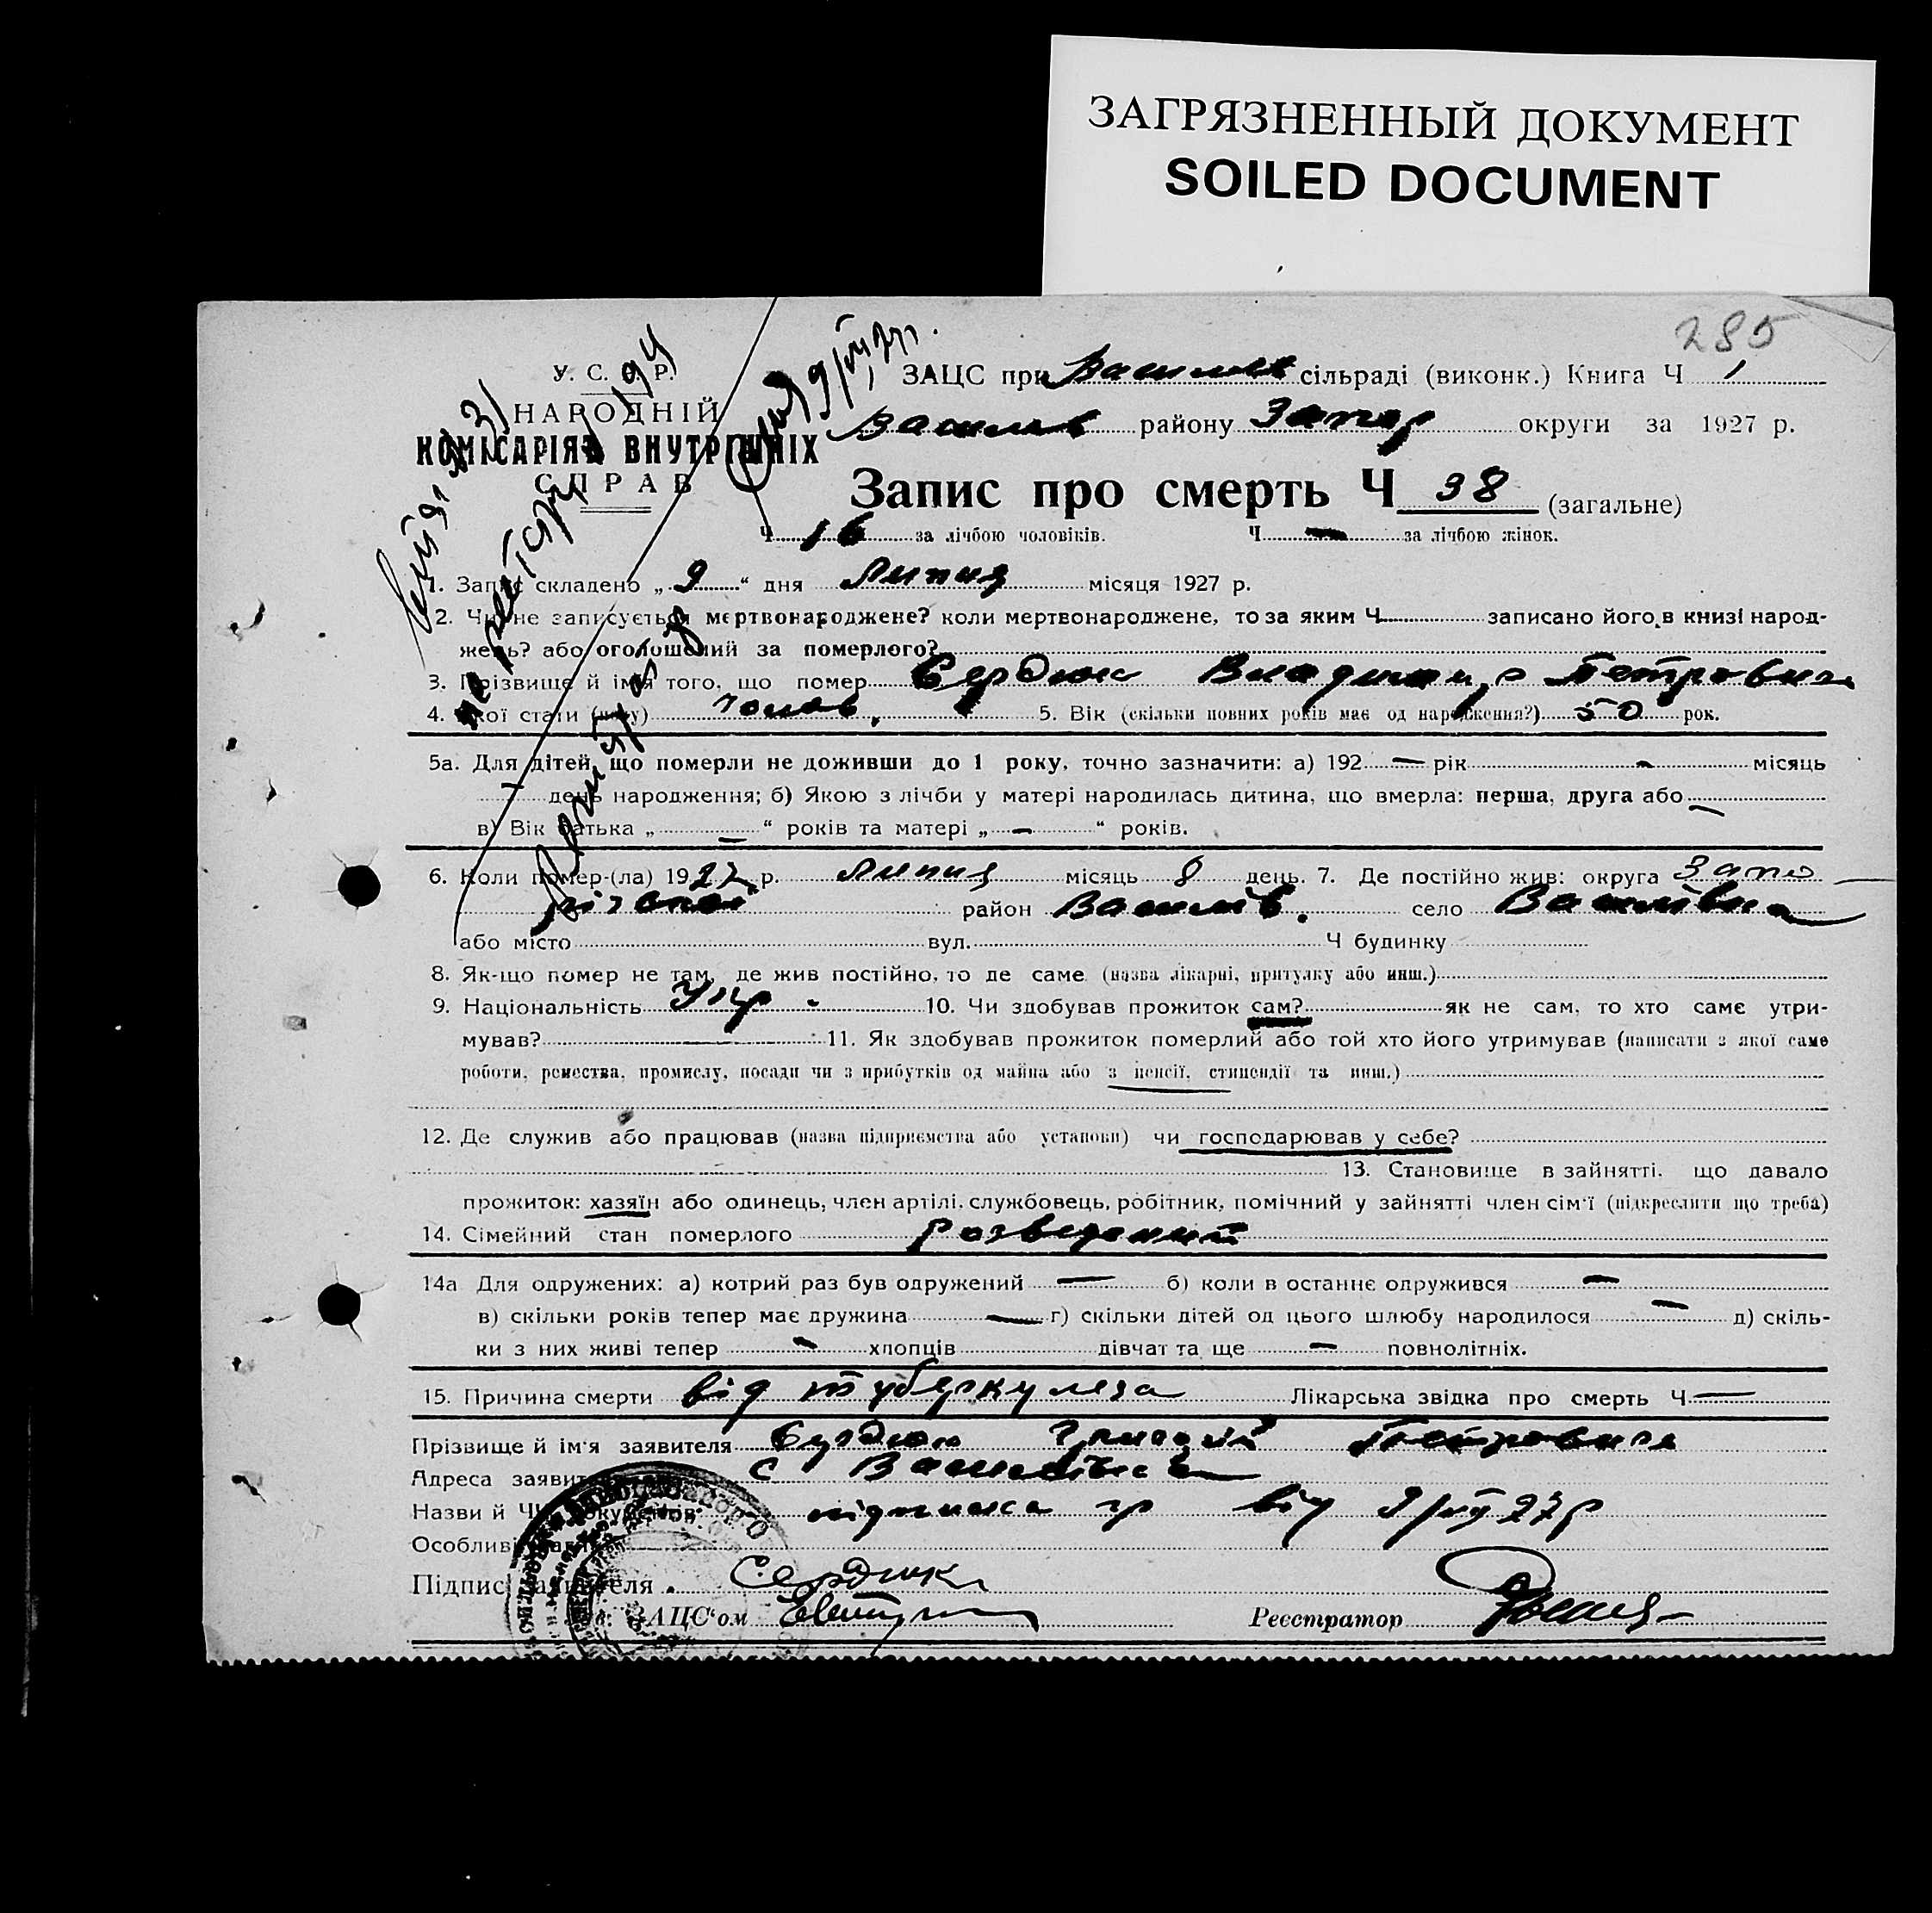 ЗАГРЯЗНЕННЫЙ ДОКУМЕНТ
SOILED DOCUMENT
285
У. С. С. Р.
НАРОДНІЙ
КОМІСАРІЯТ ВНУТРІШНІХ
СПРАВ
ЗАЦС при Василів сільраді (виконк.) Книга Ч 1
Василів району Запор округи за 1927 р.
Запис про смерть Ч 38 (загальне)
Ч 16 за лічбою чоловіків. Ч — за лічбою жінок.
1. Запис складено „ 9 “ дня Липня місяця 1927 р.
2. Чи не записується мертвонароджене? коли мертвонароджене, то за яким Ч записано його в книзі народ-
жень? або оголошений за померлого?
3. Прізвище й імя того, що помер Сердюк Владимир Петрович
4. Якої стати (полу) чолов. 5. Вік (скільки повних років має од народження?) 50 рок.
5а. Для дітей, що померли не доживши до 1 року, точно зазначити: а) 192 — рік - місяць
— день народження; б) Якою з лічби у матері народилась дитина, що вмерла: перша, друга або —
в) Вік батька „ — “ років та матері „ — “ років.
6. Коли помер-(ла) 1927 р. липня місяць 8 день. 7. Де постійно жив: округа Запо-
різькой район Василів. село Василівка
або місто вул. Ч будинку
8. Як-що помер не там, де жив постійно, то де саме (назва лікарні, притулку або инш.)
9. Національність Укр. 10. Чи здобував прожиток сам? як не сам, то хто саме утри-
мував? 11. Як здобував прожиток померлий або той хто його утримував (написати з якої саме
роботи, ремества, промислу, посади чи з прибутків од майна або з пенсії, стипендії та инш.)
12. Де служив або працював (назва підприємства або установи) чи господарював у себе?
13. Становище в зайнятті, що давало
прожиток: хазяїн або одинець, член артілі, службовець, робітник, помічний у зайнятті член сім'ї (підкреслити що треба)
14. Сімейний стан померлого розведений
14а Для одружених: а) котрий раз був одружений — б) коли в останнє одружився —
в) скільки років тепер має дружина — г) скільки дітей од цього шлюбу народилося — д) скіль-
ки з них живі тепер - хлопців дівчат та ще — повнолітніх.
15. Причина смерти від туберкулеза Лікарська звідка про смерть Ч —
Прізвище й ім'я заявителя Сердюк Григорій Петрович
Адреса заявителя с Василівка
Назви й ЧЧ документів підписка гр від 9/VII 27 р
Особливі
Підпис заявителя Сердюк
Зав. ЗАЦС'ом Реєстратор